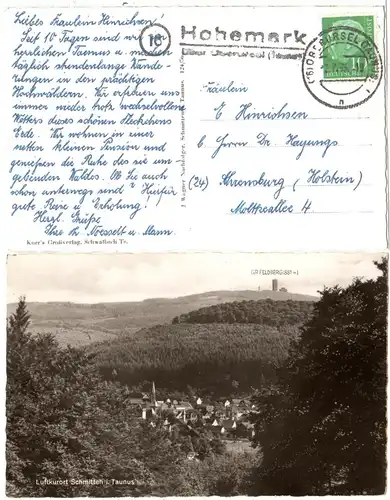 Liebes Fräulein Hinrichsen!
Auf 10 Tagen sind wir im
herrlichen Taunus u. machen
täglich stundenlange Wande-
rungen in den prächtigen
Hochwäldern. Wir erfreuen uns
immer wieder trotz wechselvollen
Wetters dieses schönen Fleckchens
Erde. Wir wohnen in einer
netten kleinen Pension und
genießen die Ruhe des sie um-
gebenden Waldes. Ob Sie auch
schon unterwegs sind? Hierfür
gute Reise u. Erholung!
Herzl. Grüße
Ihre u. Mann.
Korr's Großverlag, Schwalbach Ts.
16
Hohemark
über Oberursel (Taunus)
(16) OBERURSEL (TAUNUS)
10
Fräulein
E. Hinrichsen
b. Herrn Dr. Hayungs
(24) Ahrensburg (Holstein)
Moltkeallee 4.
GR. FELDBERG (881 m)
Luftkurort Schmitten i. Taunus